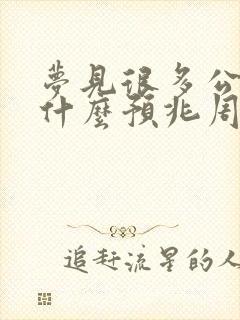 夢見很多公
什麼預兆周
追赶流星的人